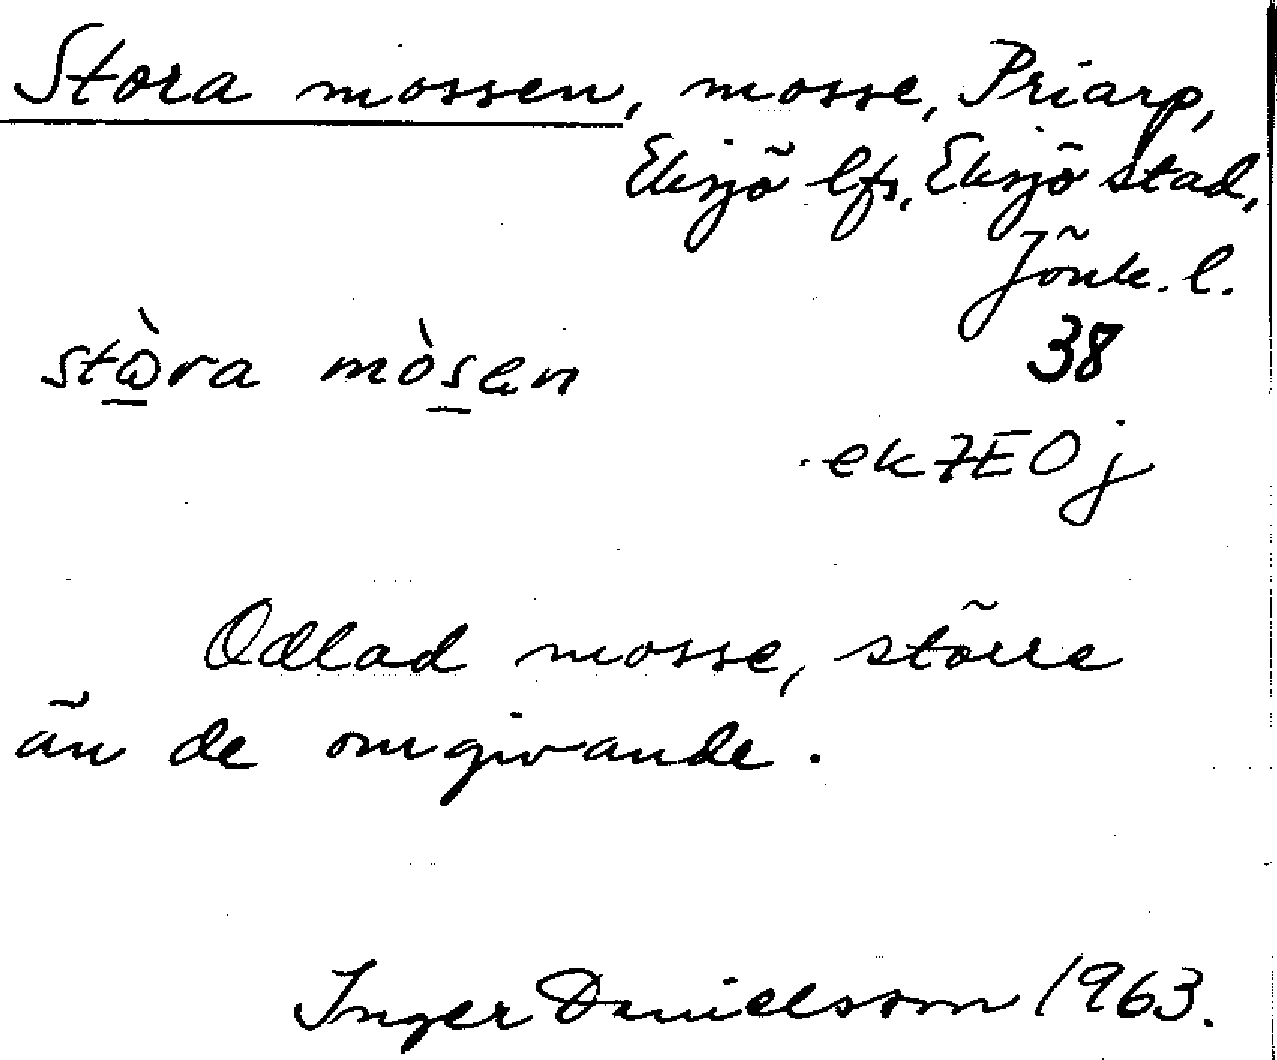 Stora mossen, mosse, Priarp,
Eksjö lfs, Eksjö stad,
Jönk. l.
38
stò̲ra mòs̲en
ek 7E0j
Odlad mosse, större
än de omgivande.
Inger Danielsson 1963.